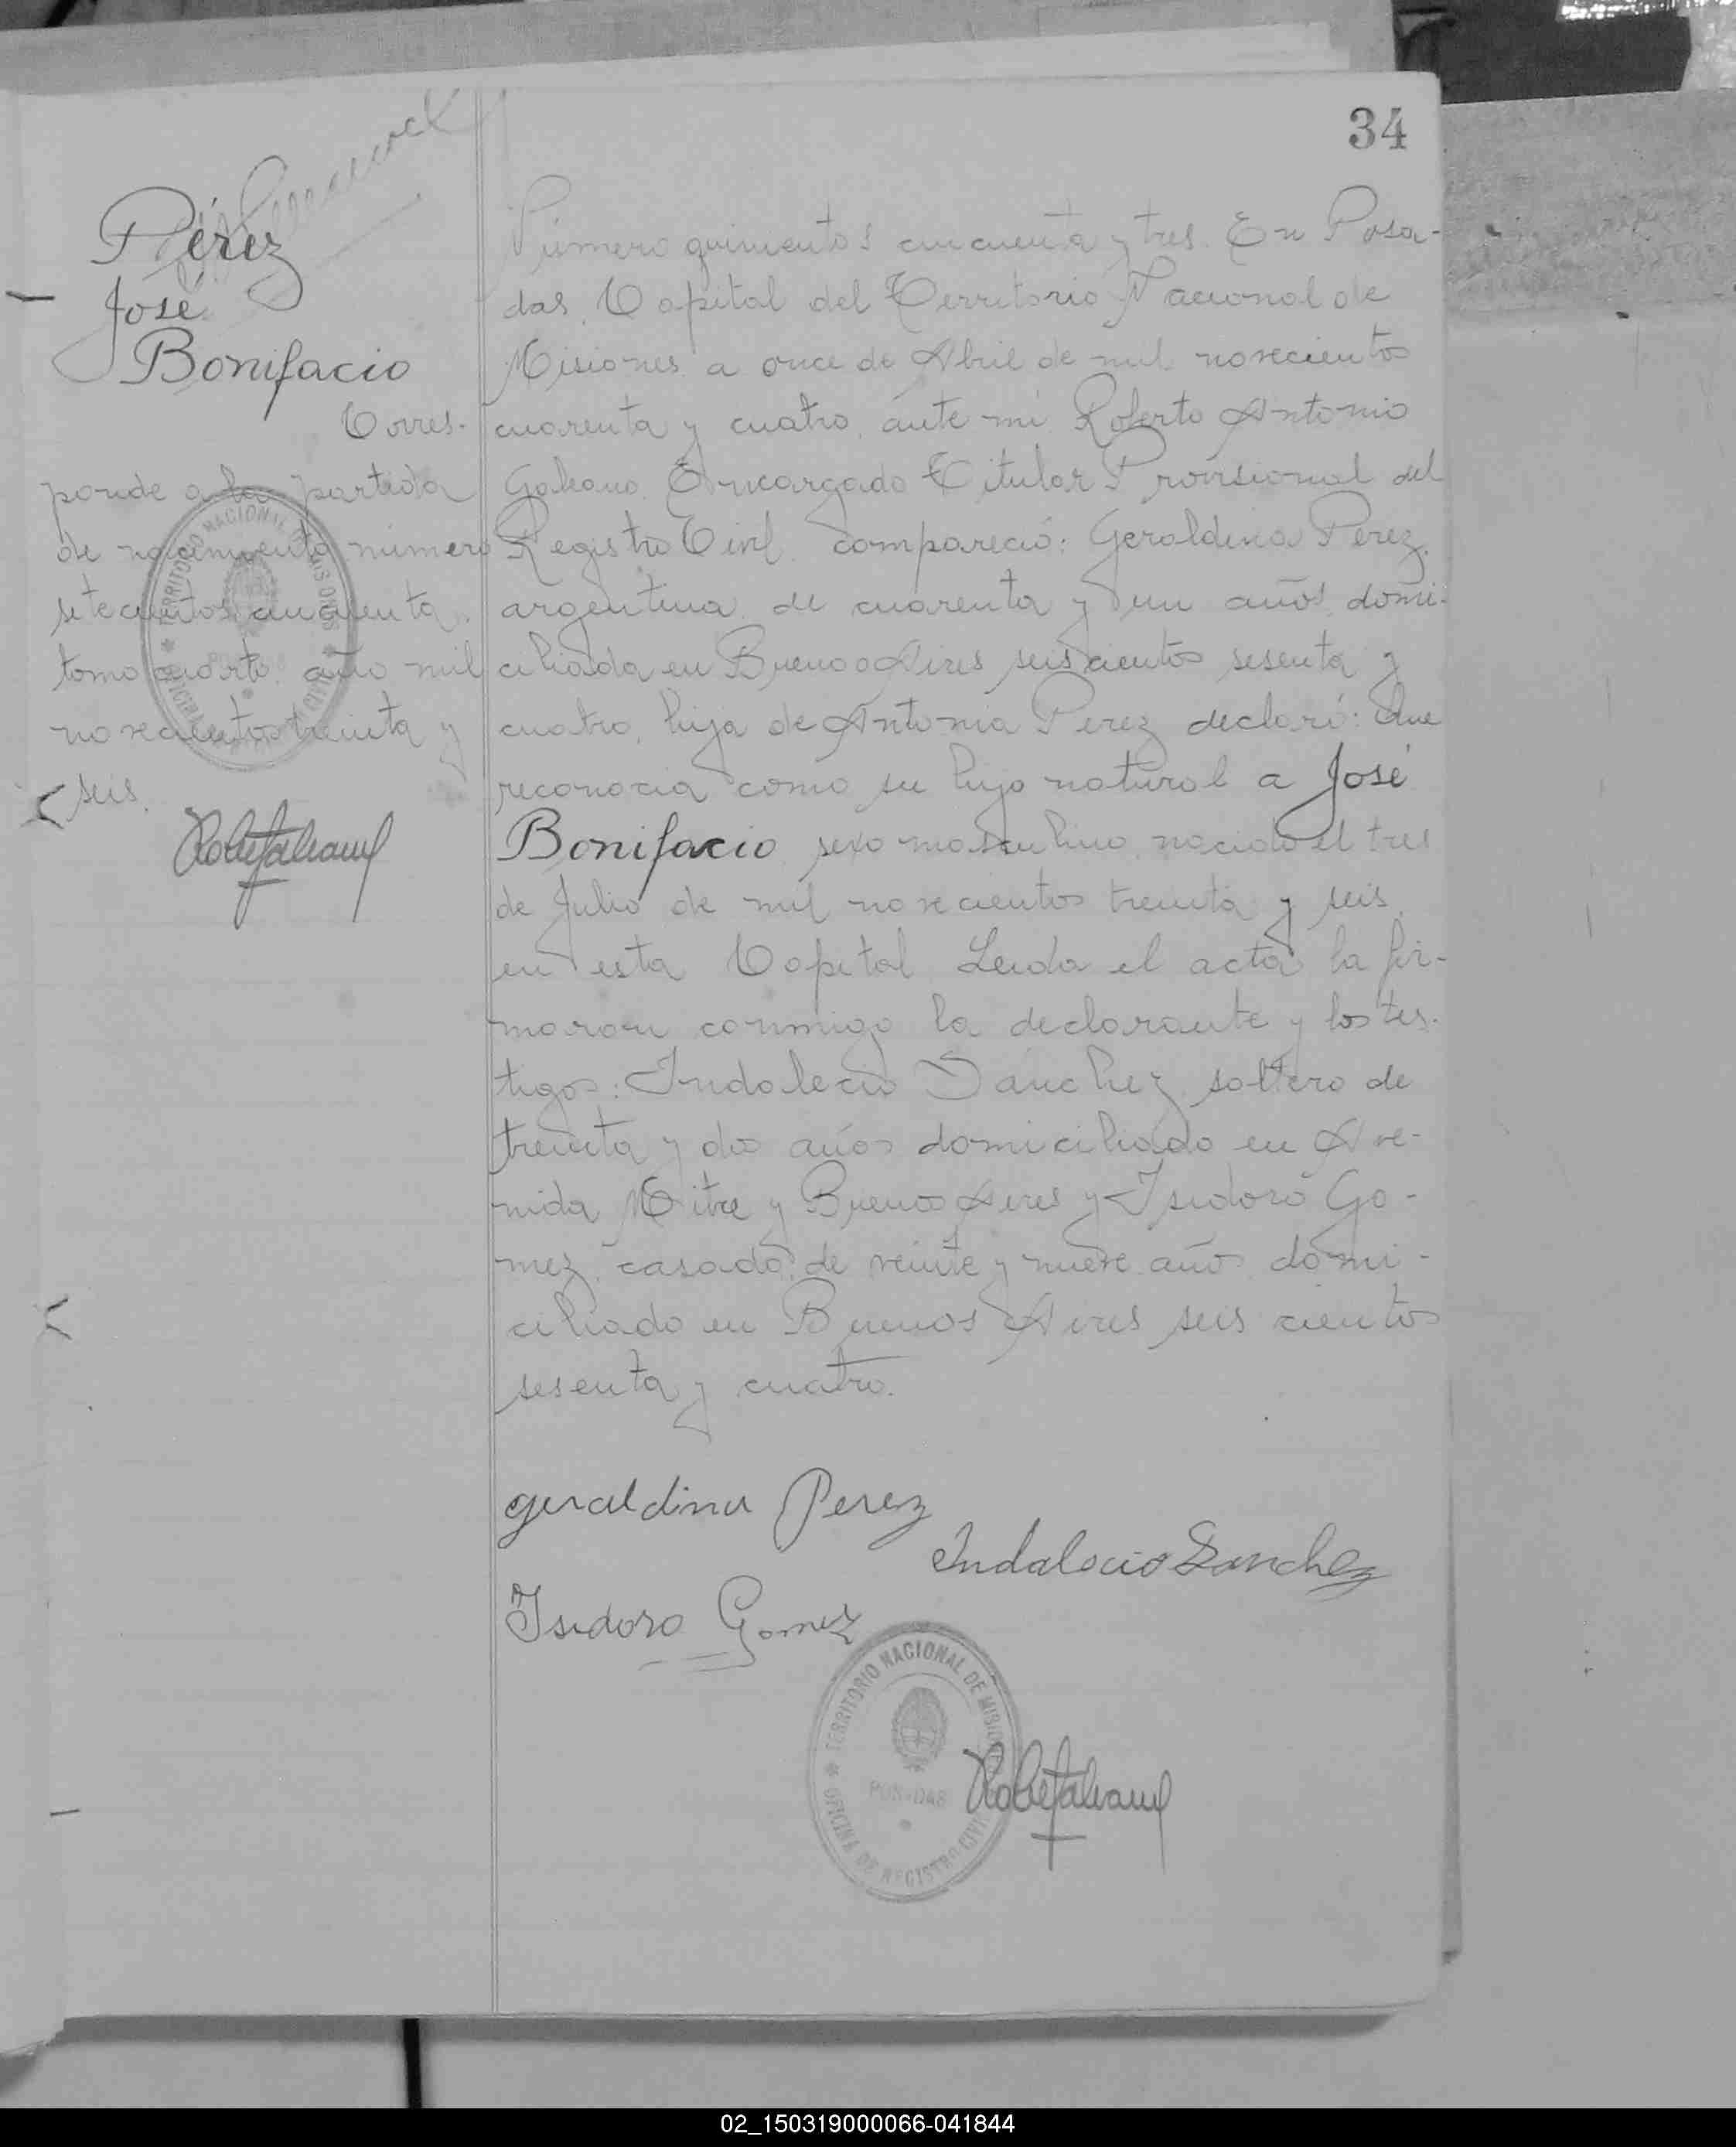 34
Pérez
José
Bonifacio
Corres-
ponde a la partida
de nacimiento número
setecientos cincuenta,
tomo cuarto, año mil
novecientos treinta y
seis.
Número quinientos cincuenta y tres. En Posa-
das, Capital del Territorio Nacional de
Misiones a once de Abril de mil novecientos
cuarenta y cuatro, ante mí Roberto Antonio
Galeano, Encargado Titular Provisional del
Registro Civil compareció: Geraldina Pérez,
argentina, de cuarenta y un años, domi-
ciliada en Buenos Aires seiscientos sesenta y
cuatro, hija de Antonia Perez declaró: Que
reconocía como su hijo natural a José
Bonifacio, sexo masculino, nacido el tres
de Julio de mil novecientos treinta y seis,
en esta Capital. Leida el acta la fir-
maron conmigo la declarante y los tes-
tigos: Indalecio Sánchez, soltero de
treinta y dos años domiciliado en Ave-
nida Mitre y Buenos Aires y Isidoro Go-
mez, casado, de veinte y nueve años domi-
ciliado en Buenos Aires seis cientos
sesenta y cuatro.
Geraldina Perez
Indalecio Sanchez
Isidoro Gomez
TERRITORIO NACIONAL DE MISIONES
POSADAS
OFICINA DE REGISTRO CIVIL
02_150319000066-041844